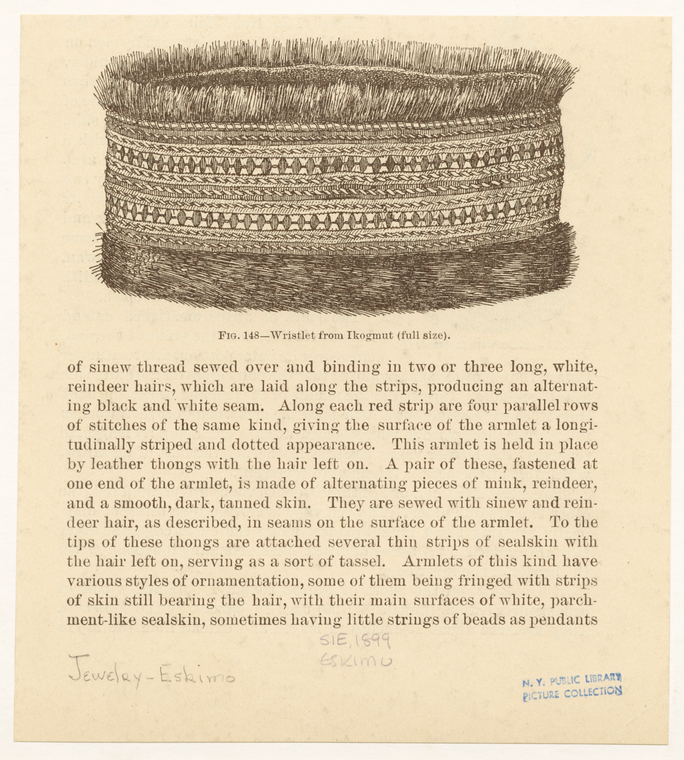 FIG. 148—Wristlet from Ikogmut (full size).
of sinew thread sewed over and binding in two or three long, white,
reindeer hairs, which are laid along the strips, producing an alternat-
ing black and white seam. Along each red strip are four parallel rows
of stitches of the same kind, giving the surface of the armlet a longi-
tudinally striped and dotted appearance. This armlet is held in place
by leather thongs with the hair left on. A pair of these, fastened at
one end of the armlet, is made of alternating pieces of mink, reindeer,
and a smooth, dark, tanned skin. They are sewed with sinew and rein-
deer hair, as described, in seams on the surface of the armlet. To the
tips of these thongs are attached several thin strips of sealskin with
the hair left on, serving as a sort of tassel. Armlets of this kind have
various styles of ornamentation, some of them being fringed with strips
of skin still bearing the hair, with their main surfaces of white, parch-
ment-like sealskin, sometimes having little strings of beads as pendants
SIE, 1899
ESKIMO
Jewelry-Eskimo
N. Y. PUBLIC LIBRARY
PICTURE COLLECTION